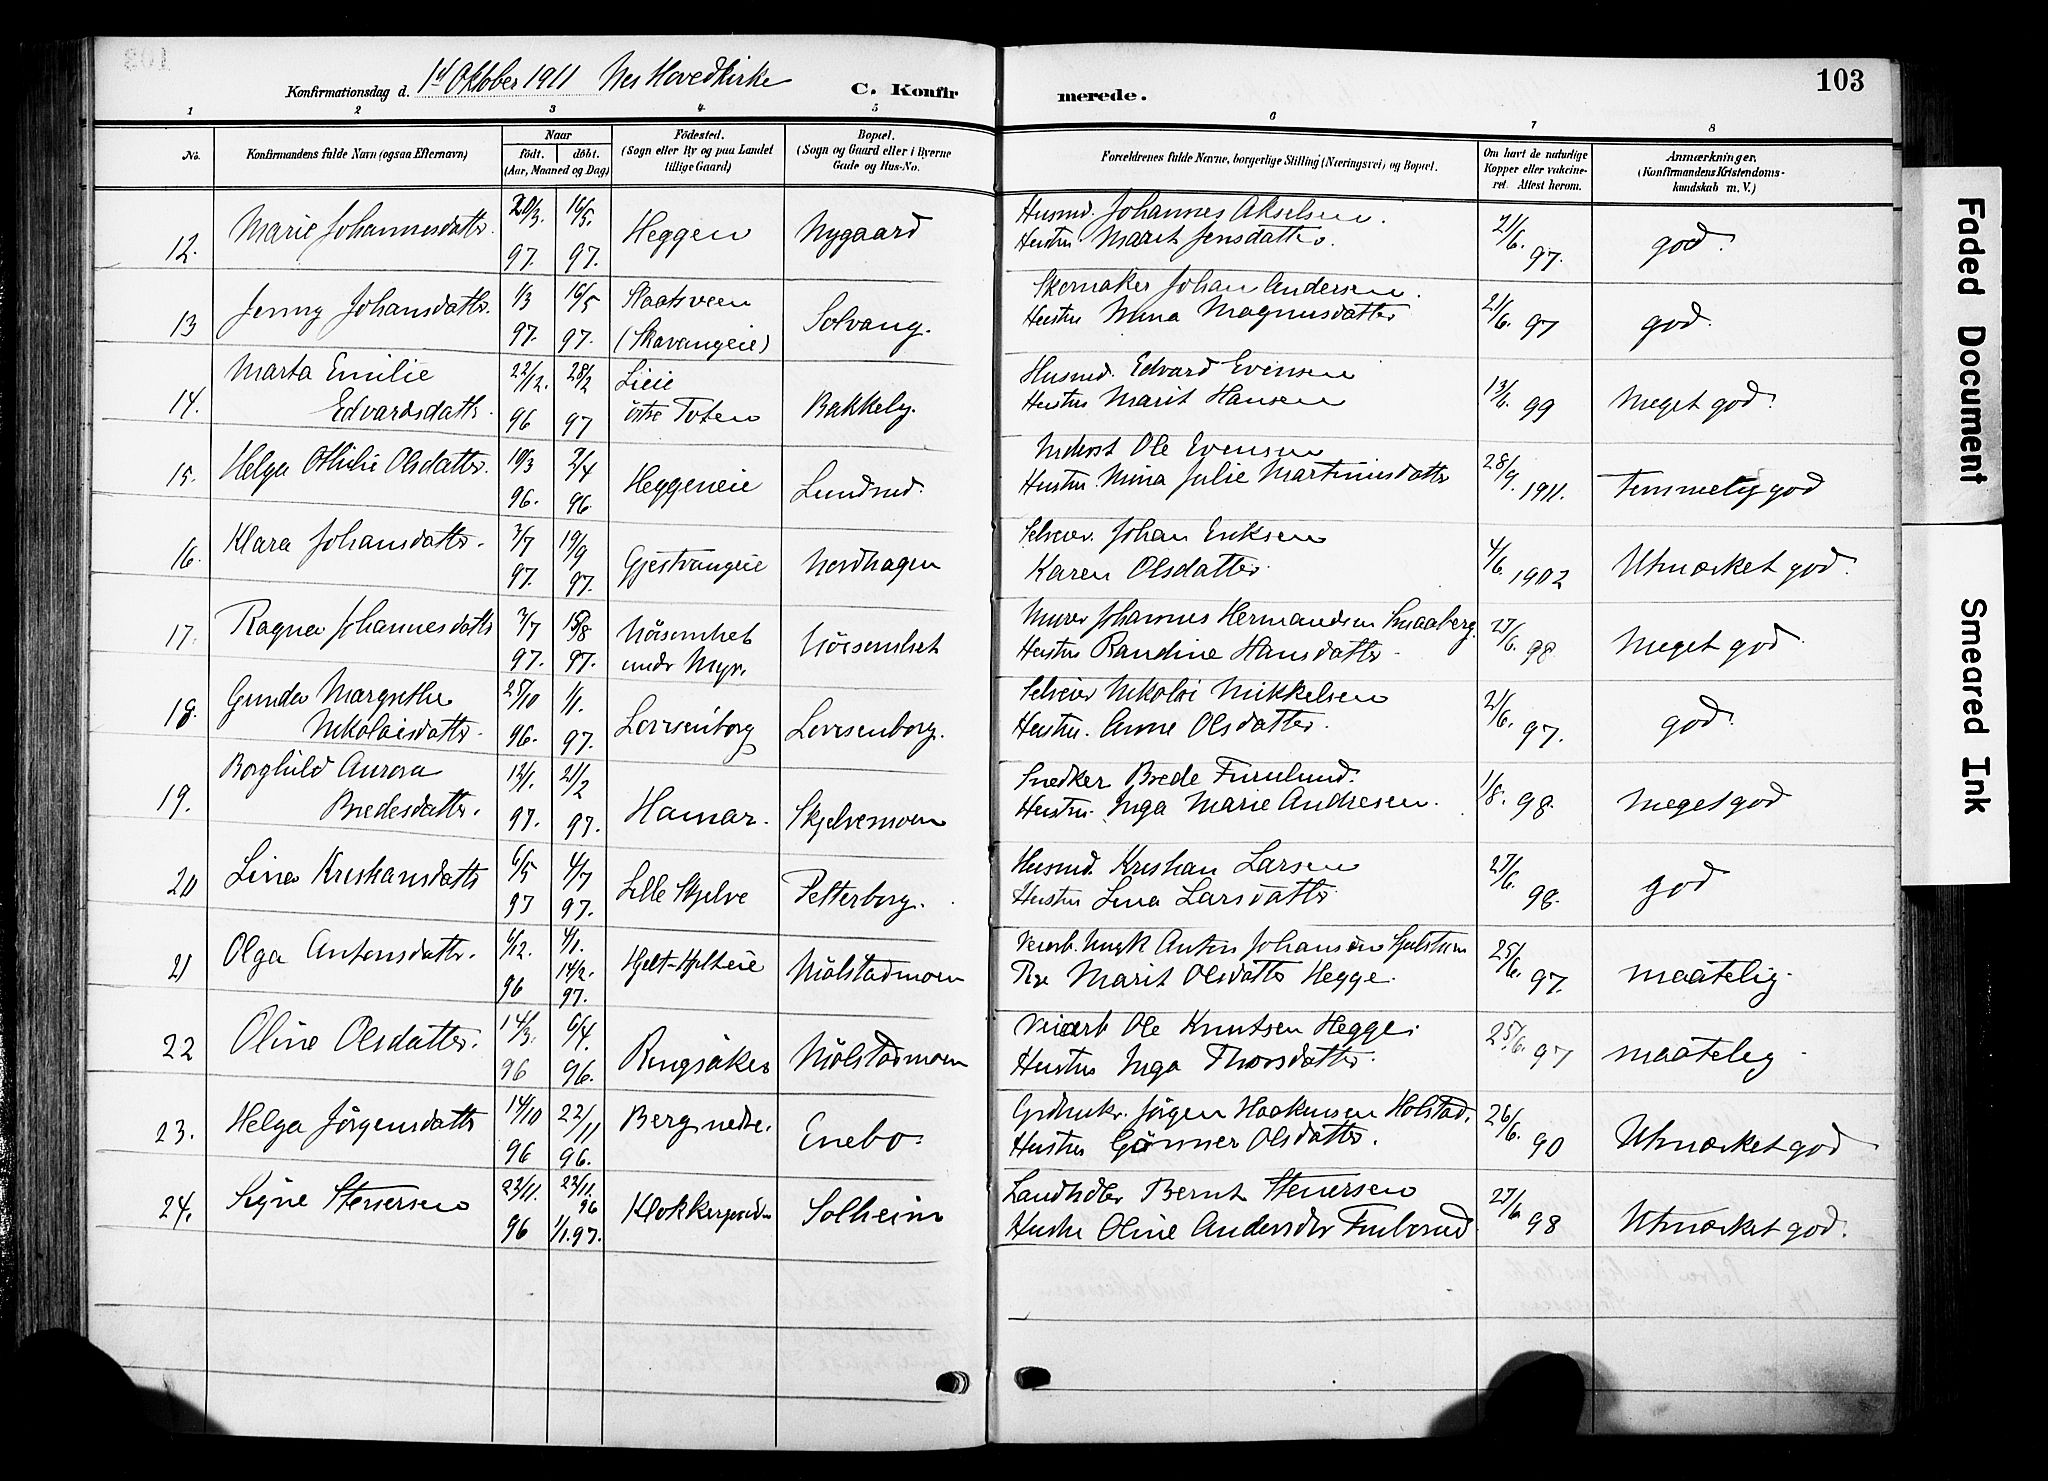 103
Konfirmationsdag d. 1ste Oktober 1911 Nes Hovedkirke
C. Konfir merede.
1 2 3 4 5 6 7 8
No.
Konfirmandens fulde Navn (ogsaa Efternavn)
Naar
født. døbt.
(Aar, Maaned og Dag)
Fødested.
(Sogn eller By og paa Landet
tillige Gaard)
Bopæl.
(Sogn og Gaard eller i Byerne
Gade og Hus-No.
Forældrenes fulde Navne, borgerlige Stilling (Næringsvei) og Bopæl.
Om havt de naturlige
Kopper eller vakcine-
ret. Attest herom.
Anmærkninger,
(Konfirmandens Kristendoms-
kundskab m. V.)
12. Marie Johannesdatter. 20/3. 97. 16/5. 97. Heggen Nygaard
Husmd. Johannes Akselsen.
Hustru Marit Jensdatter. 21/6. 97. god.
13 Jenny Johansdatter. 1/3 97. 16/5 97. Staatsveen
(Skavangeie) Solvang.
Skomaker Johan Andersen.
Hustru Mina Magnusdatter 21/6. 97 god.
14. Marta Emilie
Edvardsdatter. 22/12. 96 28/2 97 Lieie
østre Toten Bakkely.
Husmd. Edvard Evensen
Hustru Marit Hansen 13/6. 99 Meget god.
15. Helga Othilie Olsdatter. 10/3 96. 2/4 96 Heggeneie Lundrud.
Inderst Ole Evensen
Hustru Mina Julie Martinusdatter 28/9. 1911. Temmelig god
16. Klara Johansdatter. 2/7 97. 19/9 97. Gjestvangeie Nordhagen
Selveier. Johan Eriksen
Karen Olsdatter. 4/6. 1902 Utmærket god.
17. Ragna Johannesdatter 3/7 97. 15/8 97. Nørsemlet
undr Myr. Nørsemlet
Murer Johannes Hermandsen Smaaberg.
Hustru Randine Hansdatter. 27/6. 98 Meget god.
18. Gunda Margrethe
Nikolaisdatter. 25/10 96. 1/1. 97. Lovisenborg Lovisenborg.
Selveier Nikolai Mikkelsen
Hustru. Anne Olsdatter. 21/6. 97. god.
19. Borghild Aurora
Bredesdatter. 12/1. 97. 21/2 97. Hamar. Skjelvemoen
Snedker Brede Furulund.
Hustru Inga Marie Andresen. 1/8. 98. Meget god
20 Lina Kristiansdatter 6/5 97 4/7 97. Lille Skjelve Petterborg.
Husmd. Kristian Larsen
Hustru Lina Larsdatter 27/6. 98. god
21 Olga Antonsdatter. 6/12. 96 4/1. 14/2. 97. Hjelt-Hjelteie Mølstadmoen
Veiarb. Ungk Anton Johansen Hjelstuen
Pige Marit Olsdatter Hegge. 25/6. 97. maatelig.
22 Oline Olsdatter. 14/3. 96 6/4. 96. Ringsaker Mølstadmoen
Veiarb Ole Knutsen Hegge.
Hustru Inga Thorsdatter. 25/6. 97 maatelig.
23. Helga Jørgensdatter 14/10 96 22/11 96. Berg nedre. Enebo.
Grdbrukr. Jørgen Haakensen Holstad.
Hustru Gunner Olsdatter. 26/6. 90 Utmærket god
24. Signe Stenersen 23/11. 96 23/11. 96 1/1. 97. Klokkergaarden Solheim
Landhdlr Bernt Stenersen
Hustru Oline Andersdtr Finborud 27/6. 98 Utmærket god.
Faded Document
Smeared Ink